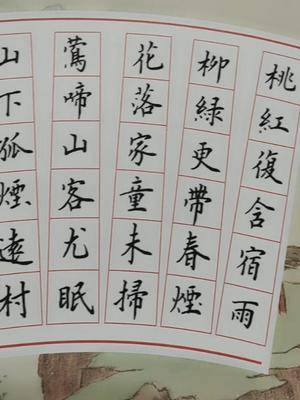 桃紅復含宿雨
柳緑更帶春煙
花落家童未掃
鶯啼山客尤眠
山下孤煙遠村